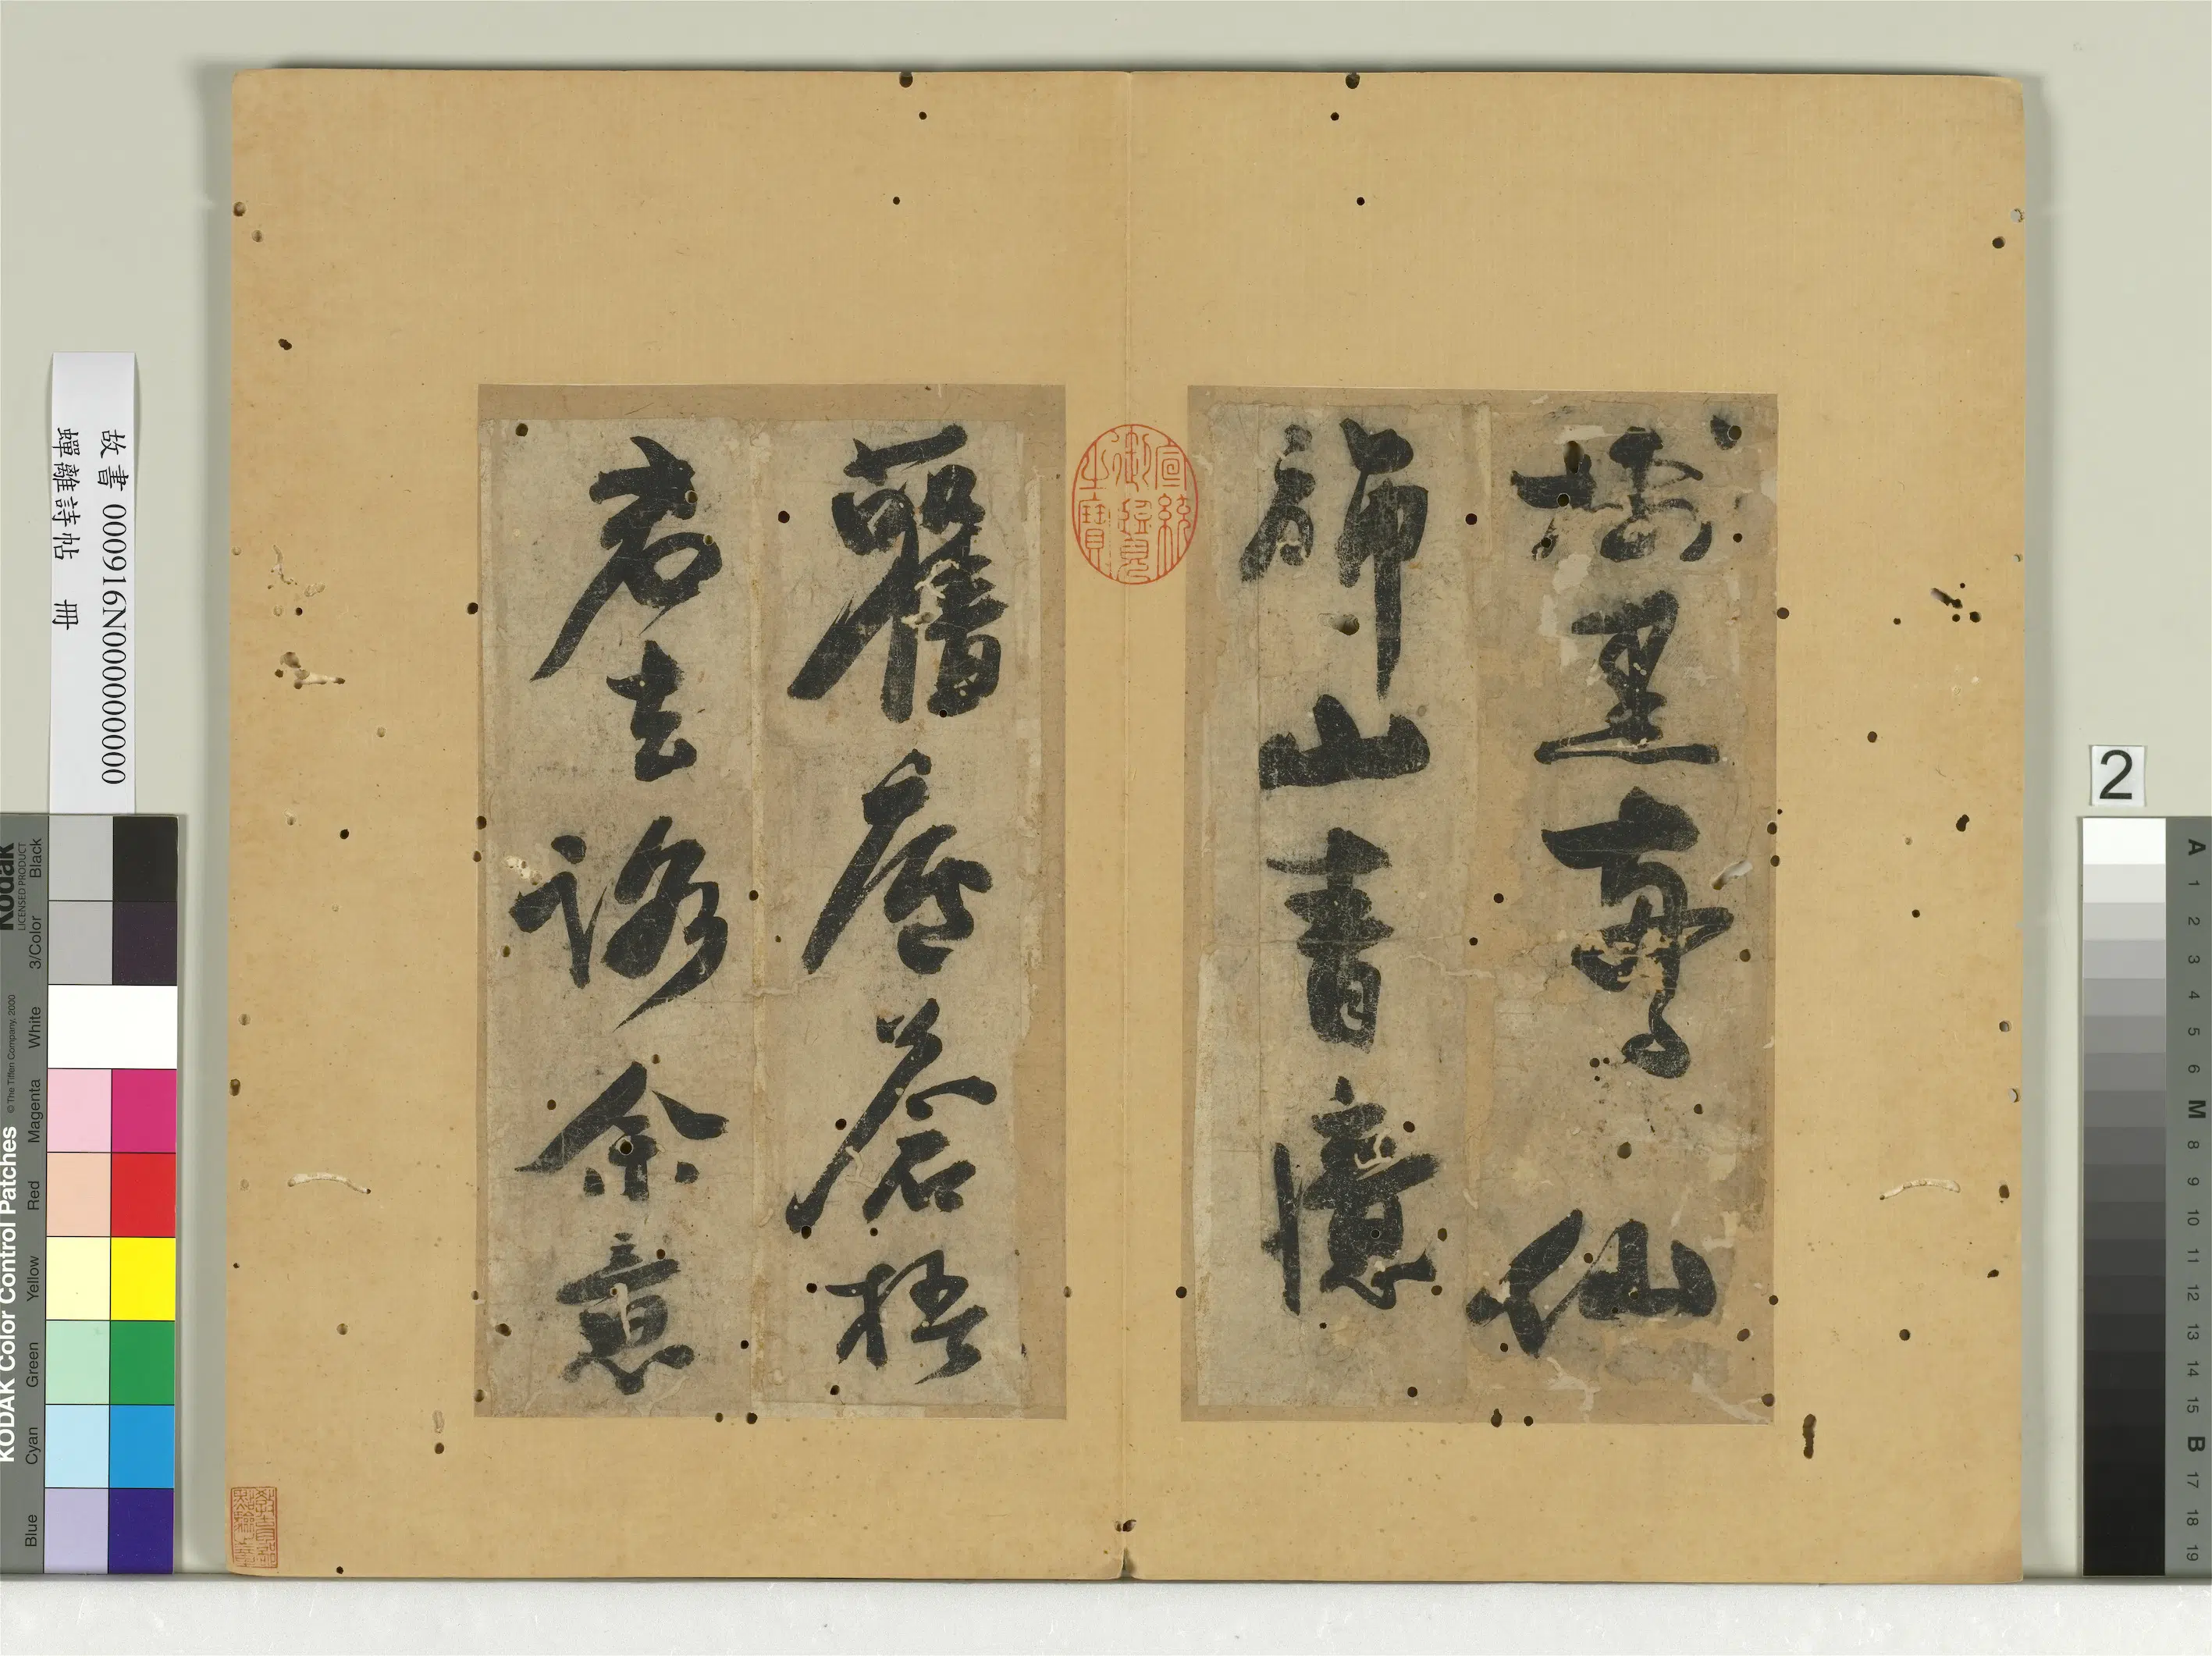 仙
歸山憶
舊廬蒼梧
君去余意
宣統御覽之寶
故書 000916N000000000
蟬離詩帖 冊
2
Kodak
LICENSED PRODUCT
KODAK Color Control Patches
© The Tiffen Company, 2000
Blue Cyan Green Yellow Red Magenta White 3/Color Black
A 1 2 3 4 5 6 M 8 9 10 11 12 13 14 15 B 17 18 19